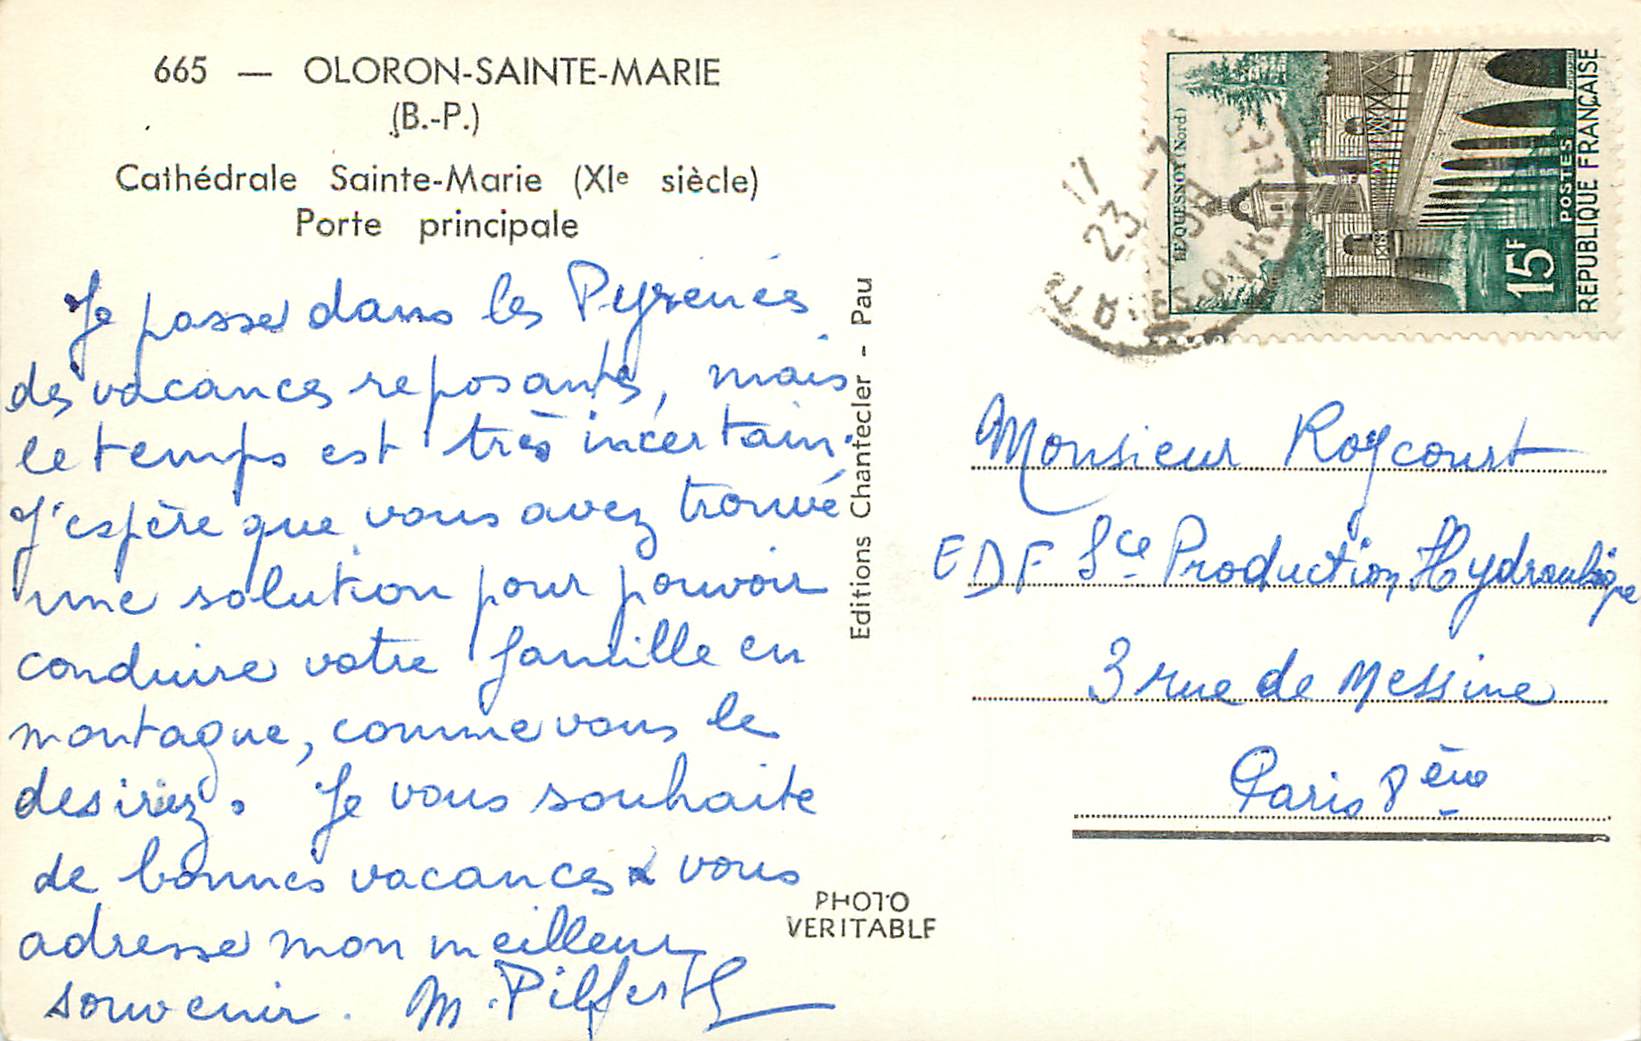 665 — OLORON-SAINTE-MARIE
(B.-P.)
Cathédrale Sainte-Marie (XIe siècle)
Porte principale
Je passe dans les Pyrénées
des vacances reposantes, mais
le temps est très incertain.
J'espère que vous avez trouvé
une solution pour pouvoir
conduire votre famille en
montagne, comme vous le
desiriez. Je vous souhaite
de bonnes vacances & vous
adresse mon meilleur
souvenir. M. Pilfert
Editions Chantecler - Pau
PHOTO
VERITABLE
LE QUESNOY (Nord)
15F
POSTES
REPUBLIQUE FRANÇAISE
17
23
Monsieur Roycourt
EDF Sce Production Hydraulique
3 rue de Messine
Paris 8ème